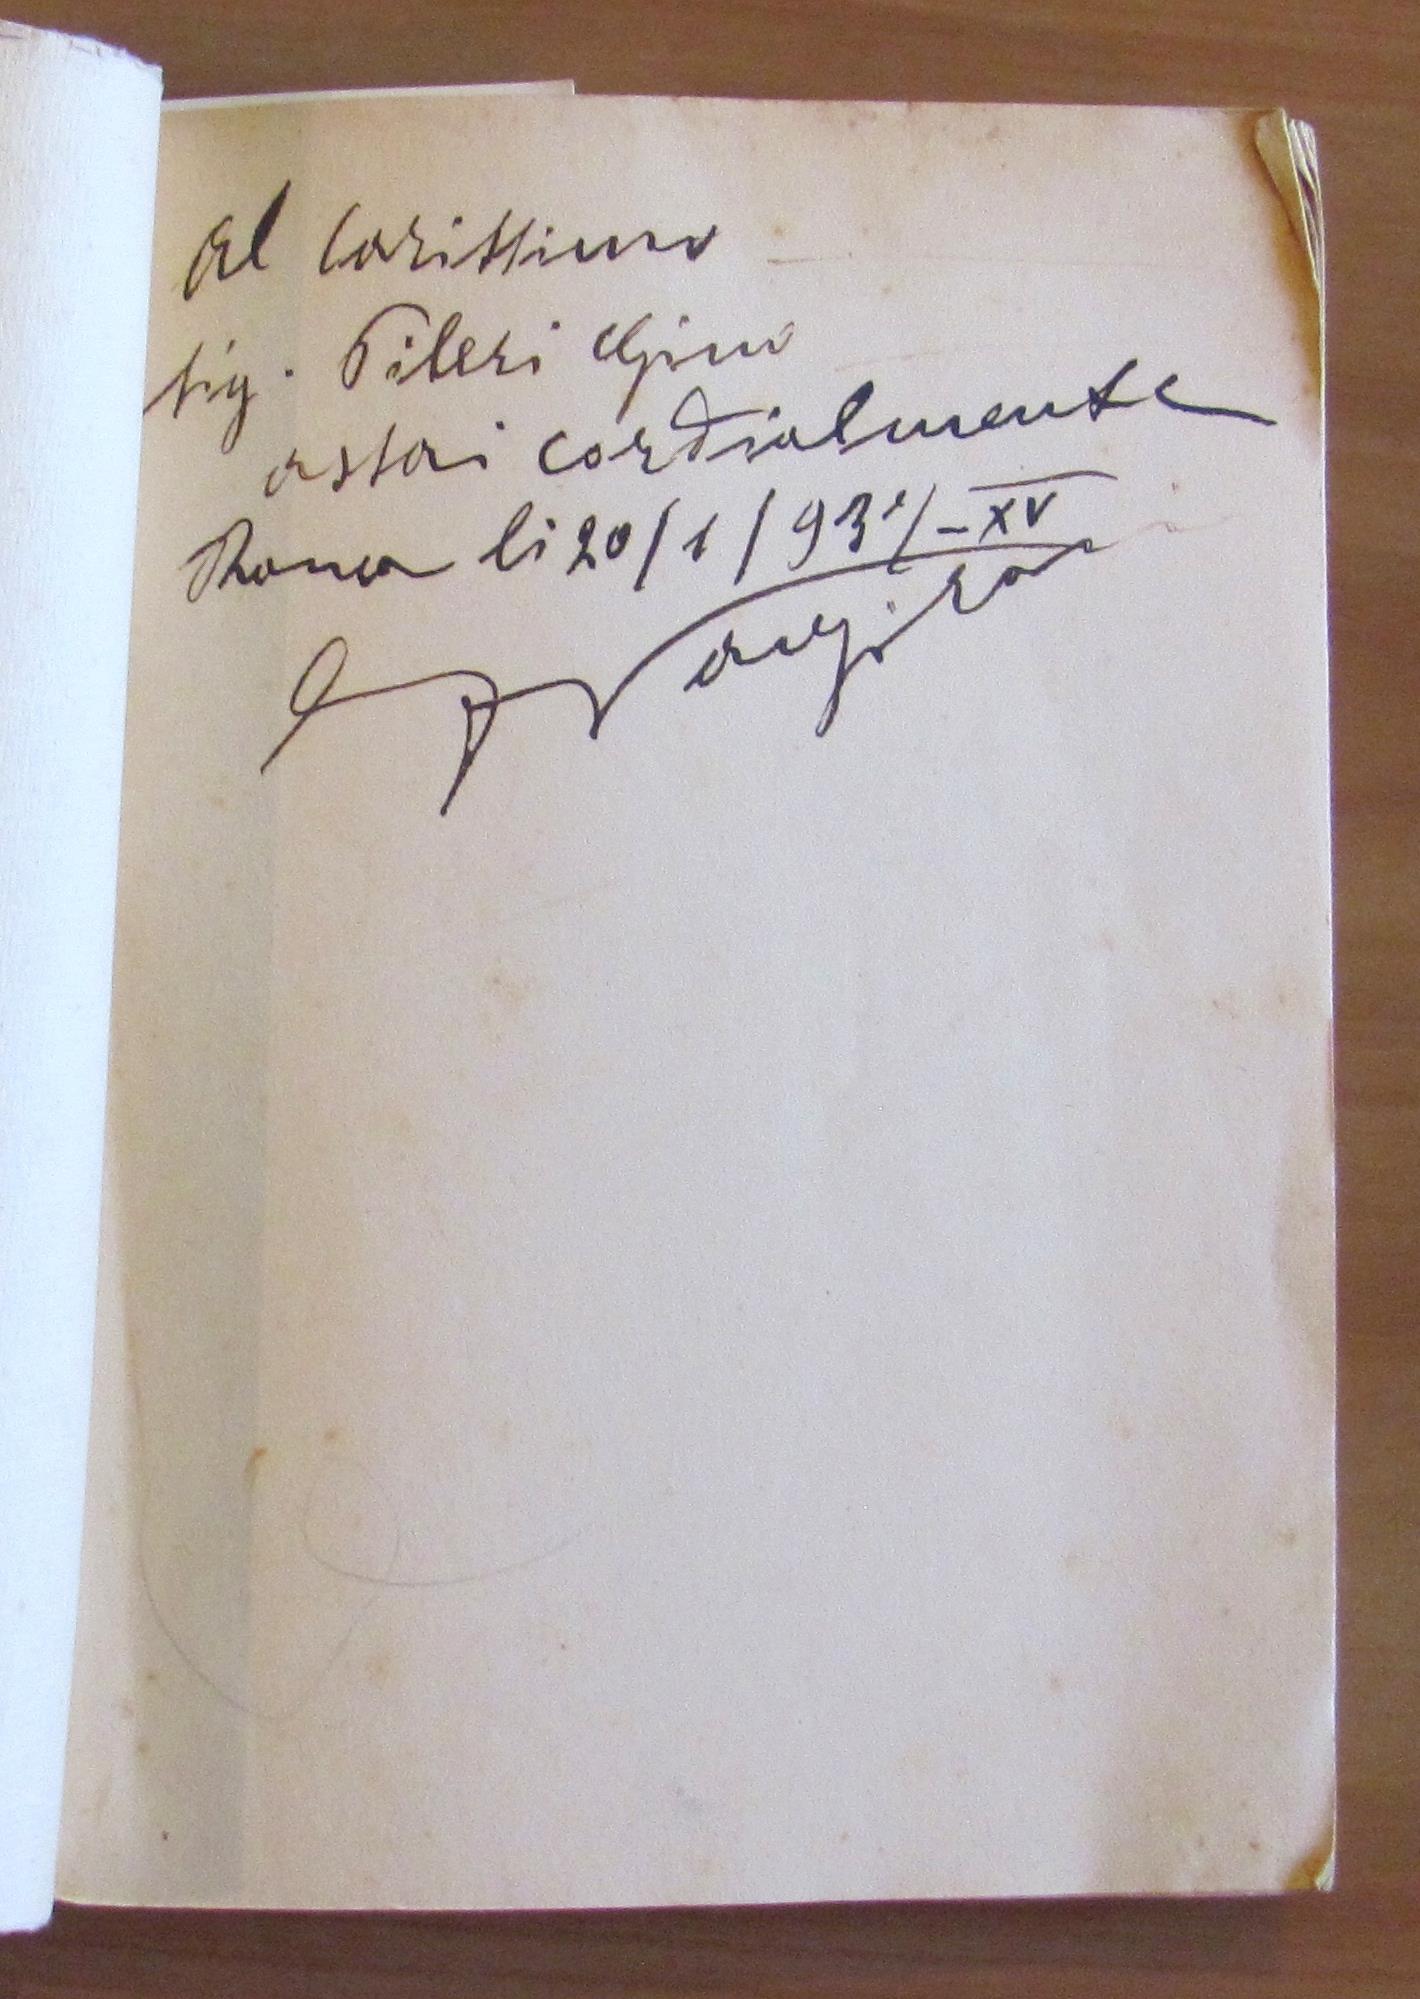 Al Carissimo
sig. Pileri Gino
assai cordialmente
Roma li 20/1/937/-XV